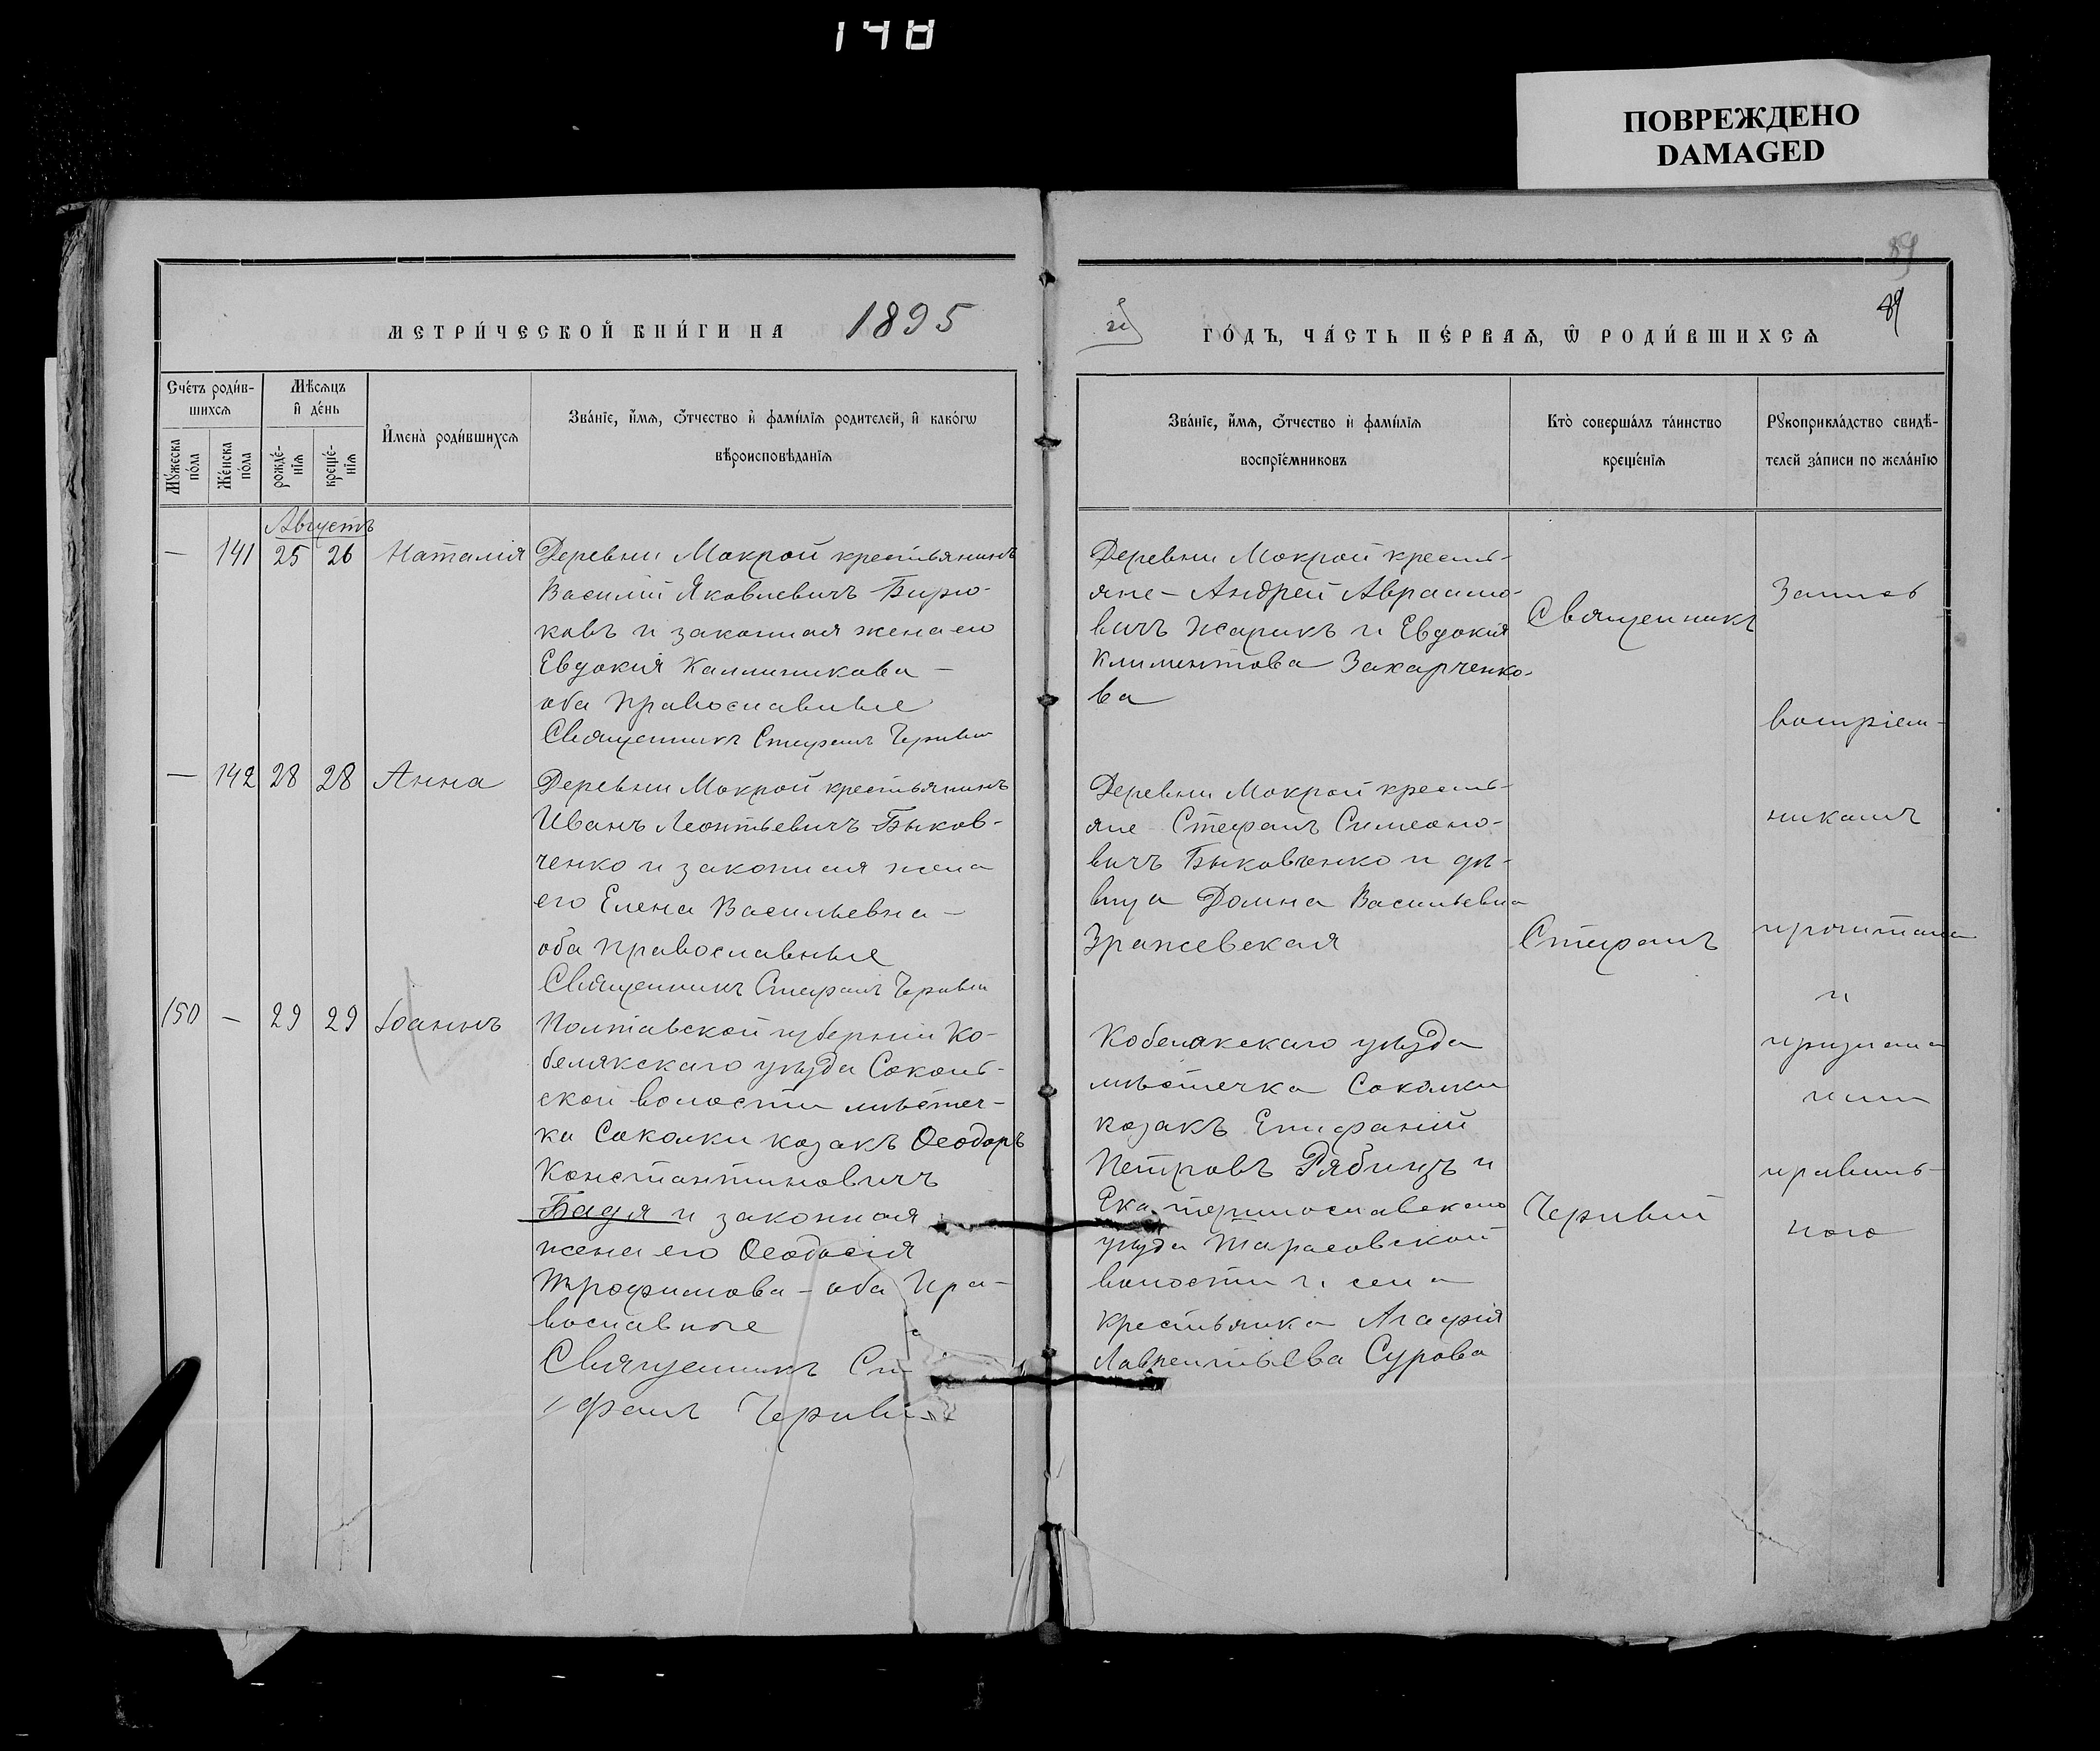 148
ПОВРЕЖДЕНО
DAMAGED
89
89
МЕТРИ́ЧЕСКОЙ КНИ́ГИ НА 1895
ГО́ДЪ, ЧА́СТЬ ПЕ́РВАѦ, Ѿ РОДИ́ВШИХСѦ
Сче́тъ роди́в-
шихсѧ
Мꙋ́жеска
по́ла
Же́нска
по́ла
Мѣ́сѧцъ
и҆ де́нь
рожде́-
нїѧ
креще́-
нїѧ
И҆мена̀ роди́вшихсѧ
Зва́нїе, и҆́мѧ, ѻ҆́тчество и҆ фами́лїѧ родителей, и҆ како́гѡ
вѣроисповѣ́данїѧ
Зва́нїе, и҆́мѧ, ѻ҆́тчество и҆ фами́лїѧ
воспрїе́мниковъ
Кто̀ соверша́лъ та́инство
креще́нїѧ
Рꙋкоприкла́дство свидѣ́-
телей за́писи по жела́нїю
Августъ
— 141 25 26 Наталія
Деревни Мокрой крестьянинъ
Василій Яковлевичъ Бирю-
ковъ и законная жена его
Евдокія Каллиникова —
оба православные
Священникъ Стефанъ Чернявій
Деревни Мокрой кресть-
яне — Андрей Авраамо-
вичъ Жарикъ и Евдокія
Климентова Захарченко-
ва
— 142 28 28 Анна
Деревни Мокрой крестьянинъ
Иванъ Леонтьевичъ Быков-
ченко и законная жена
его Елена Васильевна —
оба православные
Священникъ Стефанъ
Деревни Мокрой кресть-
яне Стефанъ Симеоно-
вичъ Быковченко и дѣ-
вица Домна Васильевна
Зражевская
150 — 29 29 Іоаннъ
Полтавской губерніи Ко-
белякскаго уѣзда Соколь-
ской волости мѣстеч-
ка Соколки козакъ Ѳеодоръ
Константиновичъ
Бадя и законная
жена его Ѳеодосія
Трофимова — оба пра-
вославные
Священникъ Ст
ефанъ
Кобелякскаго уѣзда
мѣстечка Соколки
козакъ Епифаній
Петровъ Рябица и
Екатеринославскаго
уѣзда Тарасовской
волости и села
крестьянка Агафія
Лаврентьева Сурова
Священникъ
Стефанъ
Запись
воспріем-
никамъ
прочитана
и
признана
ими
правиль-
ною